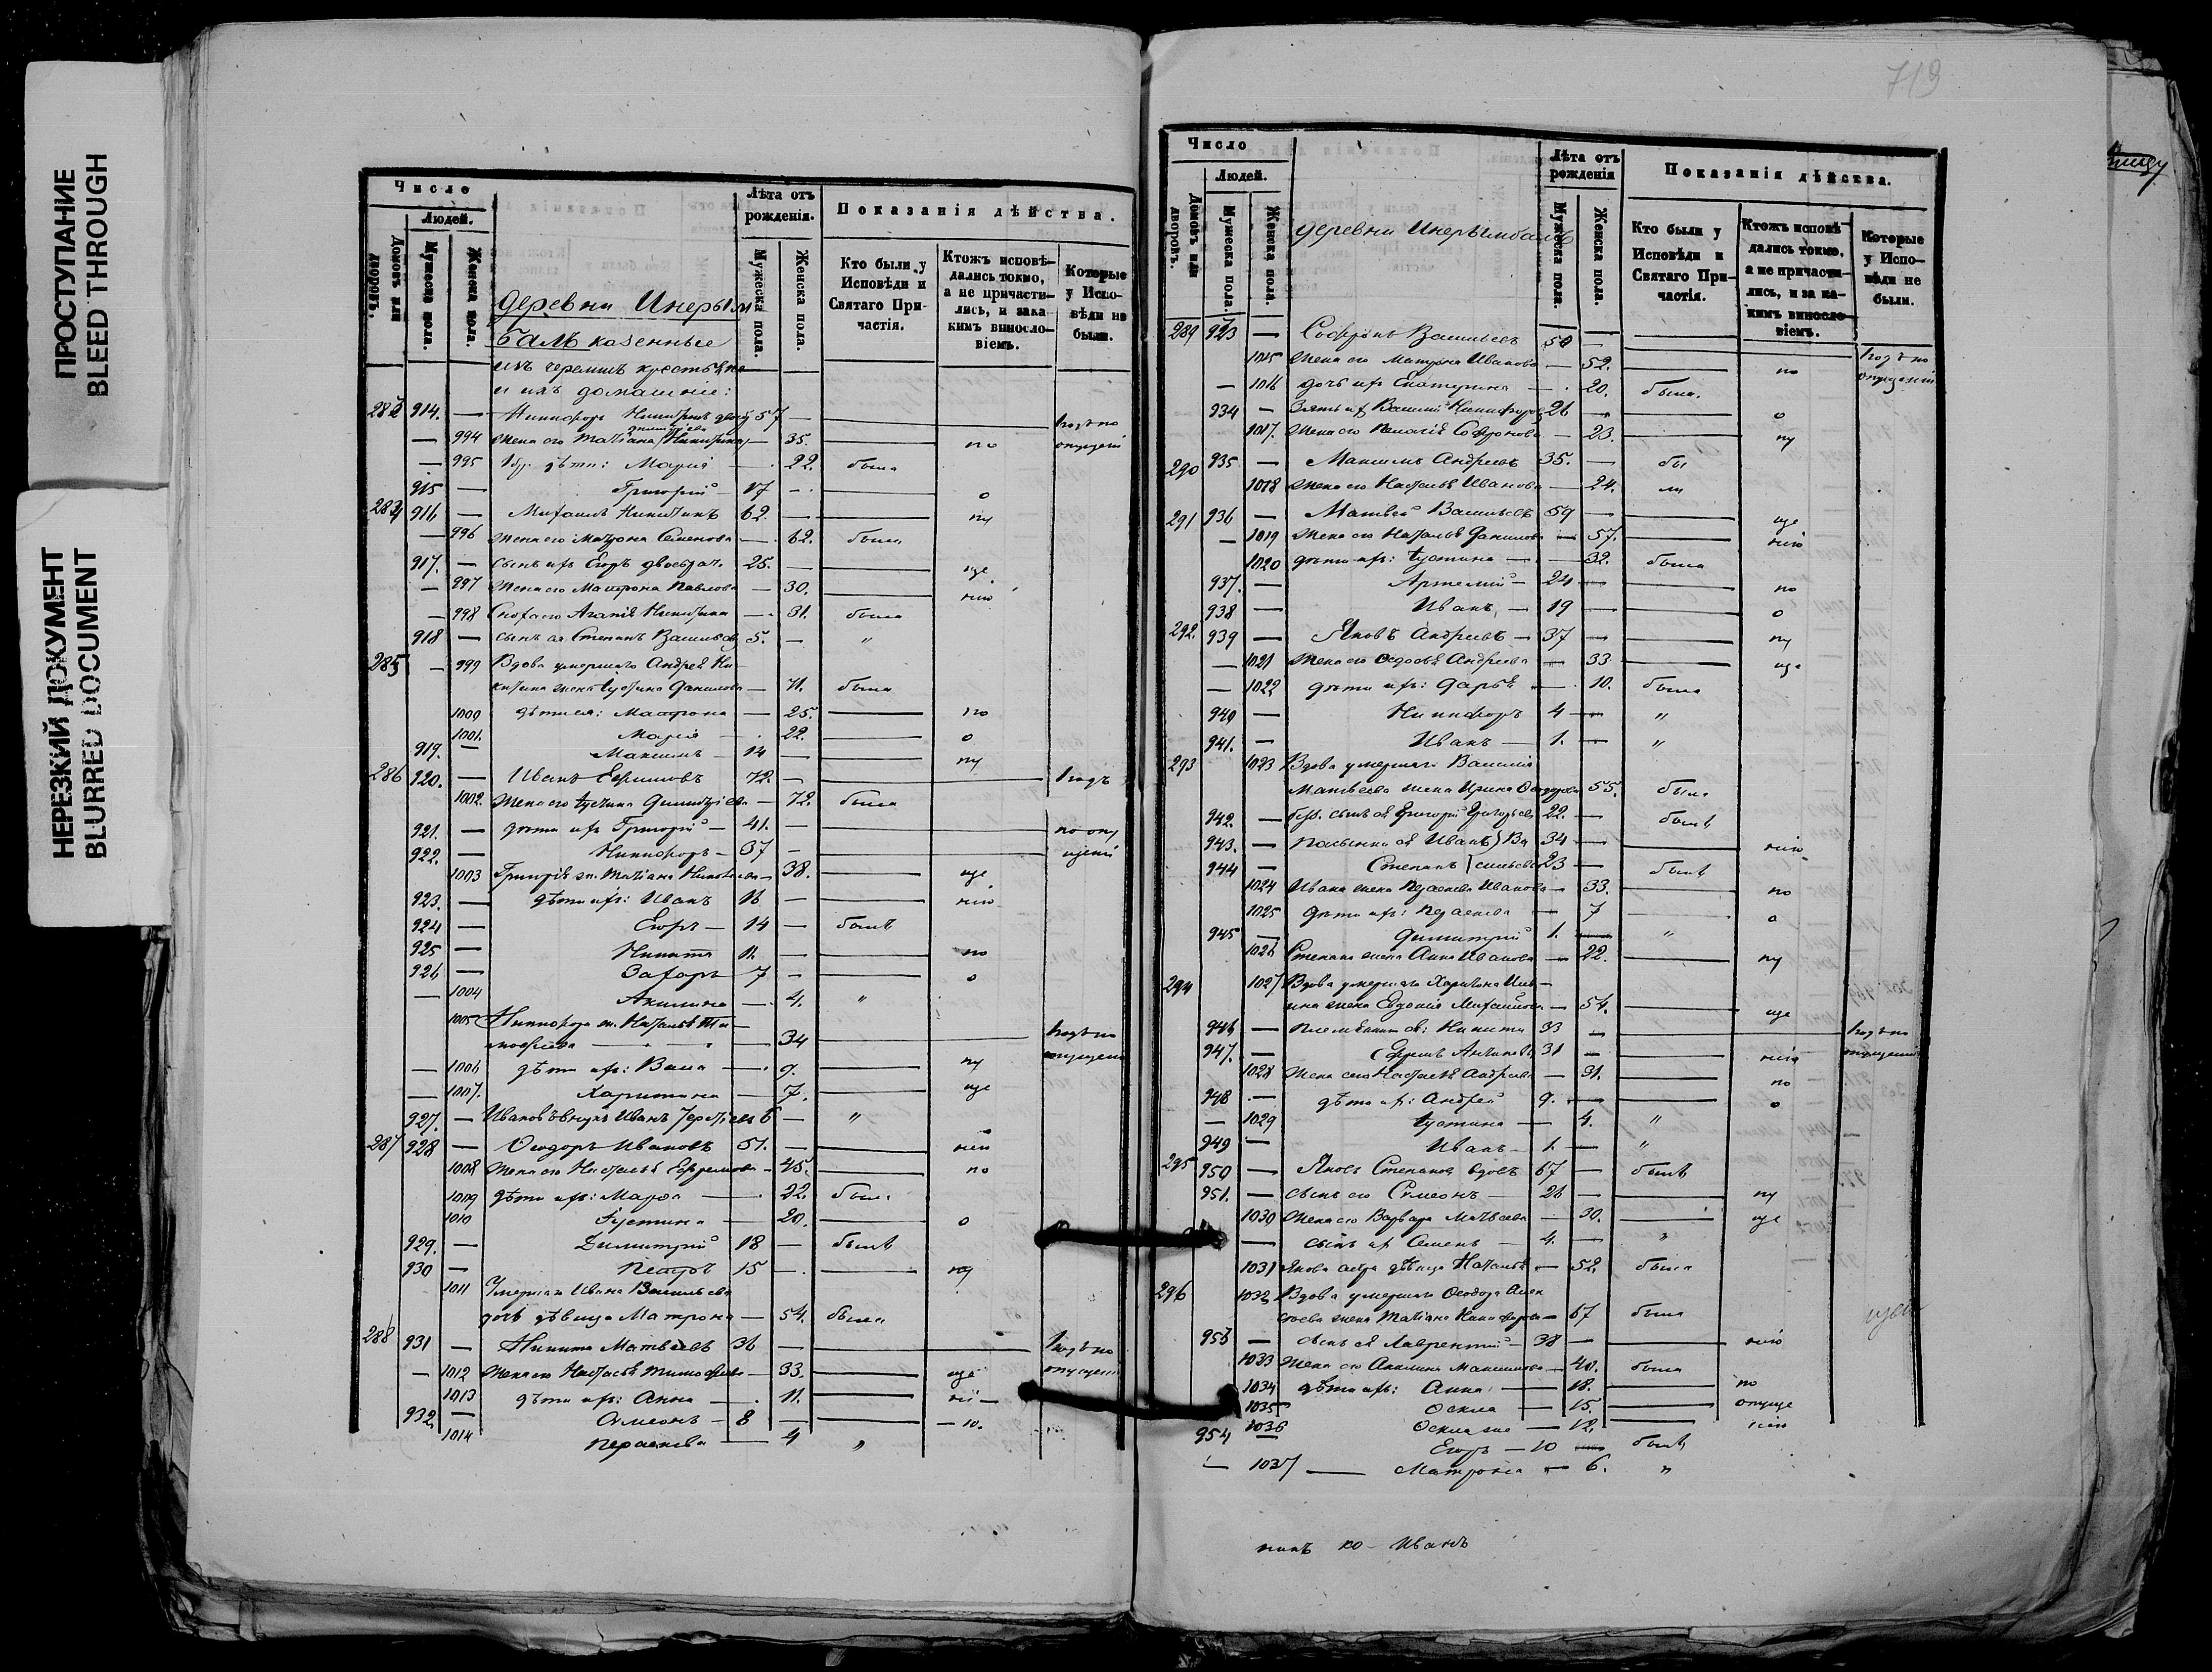 ПРОСТУПАНИЕ
BLEED THROUGH
НЕРЕЗКИЙ ДОКУМЕНТ
BLURRED DOCUMENT
Число
Людей.
Домовъ или дворовъ.
Мужеска пола.
Женска пола.
Лѣта отъ рожденія.
Мужеска пола.
Женска пола.
Показанія дѣйства.
Кто были у Исповѣди и Святаго Причастія.
Ктожъ исповѣдались токмо, а не причастились, и зака кимъ винословіемъ.
Которые у Исповѣди не были.
деревни Инерым
балъ казенные
изъ черемисъ крестьяне
и ихъ домашніе:
914. — Никифоръ 57 —
— 994 жена его Татіана 35. по
— 995 дѣти: Марія — 22. была
915 — Григорій — 17 — о
916 — Михаилъ Никитинъ 62. — пу
— 996 жена его Матрона Семенова — 62. была
917. — сынъ ихъ Егоръ 25. — ще
— 997 жена его Матрона Павлова — 30. нію
— 998 Агапія — 31. была
918 — сынъ ея Стефанъ 5. — "
285 — 999 Вдова умершаго Андрея Ни-
китина жена Іустина Данилова — 71. была
1000 дѣти ея: Матрона — 25. по
1001. Марія — 22. о
919. — Максимъ — 14 — пу
286 920. — Иванъ Ефимовъ 72. — 1 годъ
1002. жена его Іустина — 72. была
921. — дѣти ихъ Григорій — 41. — по опу
922. — Никифоръ — 37 — щенію
1003 Татіана — 38. ще
923. — дѣти ихъ: Иванъ 16 — нію
924 — Егоръ — 14 — былъ
925 — Никита 11. — по
926 — Захаръ 7 — о
— 1004 Акилина — 4. "
1005 Никифора ж. Наталья Ти-
мофеева — 34
— 1006 дѣти ихъ: — 9. пу
— 1007. Харитина — 7. ще
927. — Ивановъ внукъ Иванъ 6 — "
287 928 — Ѳеодоръ Ивановъ 51. — нію
1008 жена его Наталья Ефремова — 45. по
1009 дѣти ихъ: Марѳа — 22. была
1010 Іустина — 20. о
929. — Димитрій 18 — былъ
930 — Петръ 15 — пу
1011 Умершаго Ивана Васильева
дочь дѣвица Матрона — 54. была
288 931 — Никита Матвѣевъ 36 —
— 1012 жена его Настасья Тимофеева — 33. ще
1013 дѣти ихъ: Анна — 11.
932 — Симеонъ — 8 — — ю.
1014 Параскева — 4 "
719
Число
Людей.
Домовъ или дворовъ.
Мужеска пола.
Женска пола.
Лѣта отъ рожденія
Мужеска пола.
Женска пола.
Показанія дѣйства.
Кто были у Исповѣди и Святаго Причастія.
Ктожъ исповѣдались токмо, а не причастились, и за какимъ винословіемъ.
Которые у Исповѣди не были.
деревни Инерымбалъ
289 Софронъ Васильевъ 50 —
1015 жена его Матрона Иванова — 52. по
— 1016 дочь ихъ Екатерина — 20. была.
934 — Зять ихъ Василій Никифоровъ 26 — о
1017. жена его Пелагія Софронова — 23. пу
290 935 — Максимъ Андреевъ 35. — бы
1018 жена его Наталья Иванова — 24. ли
291 936 — Матвей Васильевъ 59 — ще
— 1019 жена его Наталья Данилова — 57. нію
1020 дѣти ихъ: Іустина — 32. была
937. — Артемій — 24 — по
938 — Иванъ — 19 — о
292. 939 — Яковъ Андреевъ — 37 — пу
— 1021 жена его Ѳедосья Андреева — 33 ще
— 1022 дѣти ихъ: Дарья — 10. была
940 — Никифоръ 4 — "
941. — Иванъ — 1. — "
293 1023 Вдова умершаго Василія
Матвѣева жена Ирина 55. была
942. — сынъ ея Григорій Григорьевъ 22. — былъ
943. — пасынки ея Иванъ) Ва 34 — нію
944 — Степанъ) сильевы 23 — былъ
1024 Ивана жена Параскева Иванова — 33. по
1025 дѣти ихъ: Параскева — 7 о
945 — Димитрій 1. — "
1026 Степана жена Анна Иванова — 22. пу
294 1027 Вдова умершаго Харитона
жена Евдокія Михайлова — 54. ще
946 — племянники ея: Никита 33 —
947. — Ефимъ Антиповы 31 — нію
1028 жена его Настасья Андреева — 31. по
948 — дѣти ихъ: Андрей 9. — о
— 1029 Іустина — 4. "
949 — Иванъ — 1. — "
295 950 — Яковъ Степановъ вдовъ 67 — былъ
951. — сынъ его Симеонъ — 26 — пу
1030 жена его Варвара Матвѣева — 30. ще
— сынъ ихъ Семенъ — 4. — "
1031 Якова сестра дѣвица Наталья — 52. была
296 1032 Вдова умершаго Ѳеодора Алек
сѣева жена Татіана Никифорова — 67 была
— сынъ ея Лаврентій — 38 — нію
1033 жена его Акилина Максимова — 40. была
1034 дѣти ихъ: Анна — 18. по
1035 Ѳекла — 15. опуще
1036 Ѳекла же — 12. нію
954 Егоръ — 10 — былъ
— 1037 — Матрона — 6. "
Иванъ